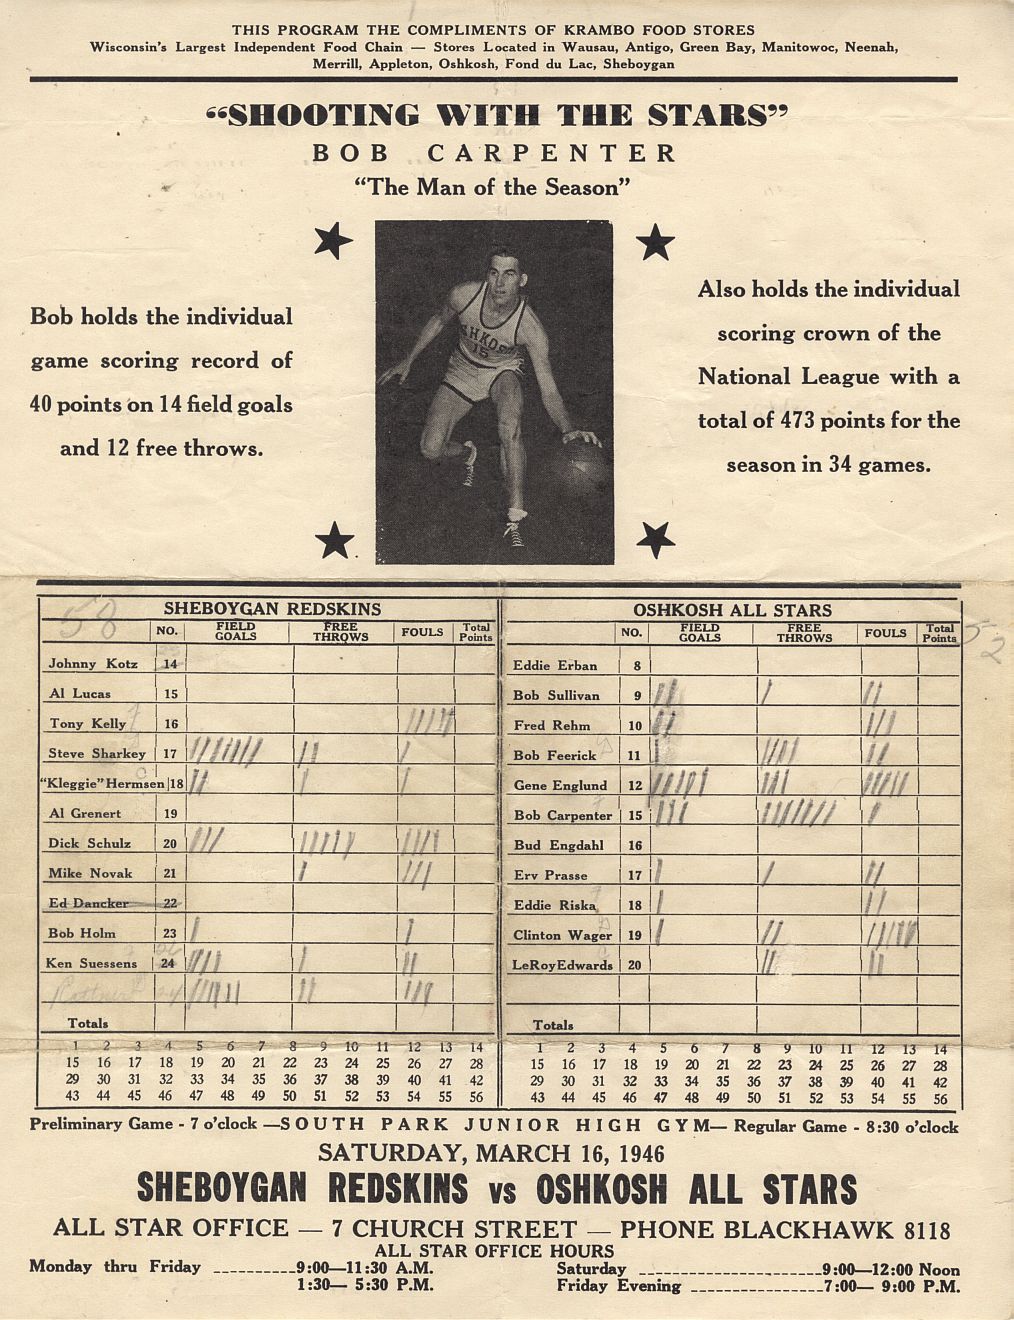 THIS PROGRAM THE COMPLIMENTS OF KRAMBO FOOD STORES
Wisconsin's Largest Independent Food Chain — Stores Located in Wausau, Antigo, Green Bay, Manitowoc, Neenah,
Merrill, Appleton, Oshkosh, Fond du Lac, Sheboygan
"SHOOTING WITH THE STARS"
BOB CARPENTER
"The Man of the Season"
Bob holds the individual
game scoring record of
40 points on 14 field goals
and 12 free throws.
OSHKOSH
15
Also holds the individual
scoring crown of the
National League with a
total of 473 points for the
season in 34 games.
58
SHEBOYGAN REDSKINS
NO. FIELD GOALS FREE THROWS FOULS Total Points
Johnny Kotz 14
Al Lucas 15
Tony Kelly 16
Steve Sharkey 17
"Kleggie" Hermsen 18
Al Grenert 19
Dick Schulz 20
Mike Novak 21
Ed Dancker 22
Bob Holm 23
Ken Suessens 24
Totals
1 2 3 4 5 6 7 8 9 10 11 12 13 14
15 16 17 18 19 20 21 22 23 24 25 26 27 28
29 30 31 32 33 34 35 36 37 38 39 40 41 42
43 44 45 46 47 48 49 50 51 52 53 54 55 56
OSHKOSH ALL STARS
52
NO. FIELD GOALS FREE THROWS FOULS Total Points
Eddie Erban 8
Bob Sullivan 9
Fred Rehm 10
Bob Feerick 11
Gene Englund 12
Bob Carpenter 15
Bud Engdahl 16
Erv Prasse 17
Eddie Riska 18
Clinton Wager 19
LeRoy Edwards 20
Totals
1 2 3 4 5 6 7 8 9 10 11 12 13 14
15 16 17 18 19 20 21 22 23 24 25 26 27 28
29 30 31 32 33 34 35 36 37 38 39 40 41 42
43 44 45 46 47 48 49 50 51 52 53 54 55 56
Preliminary Game - 7 o'clock —SOUTH PARK JUNIOR HIGH GYM— Regular Game - 8:30 o'clock
SATURDAY, MARCH 16, 1946
SHEBOYGAN REDSKINS vs OSHKOSH ALL STARS
ALL STAR OFFICE — 7 CHURCH STREET — PHONE BLACKHAWK 8118
ALL STAR OFFICE HOURS
Monday thru Friday ----------9:00—11:30 A.M.
1:30— 5:30 P.M.
Saturday ----------------------9:00—12:00 Noon
Friday Evening ----------------7:00— 9:00 P.M.